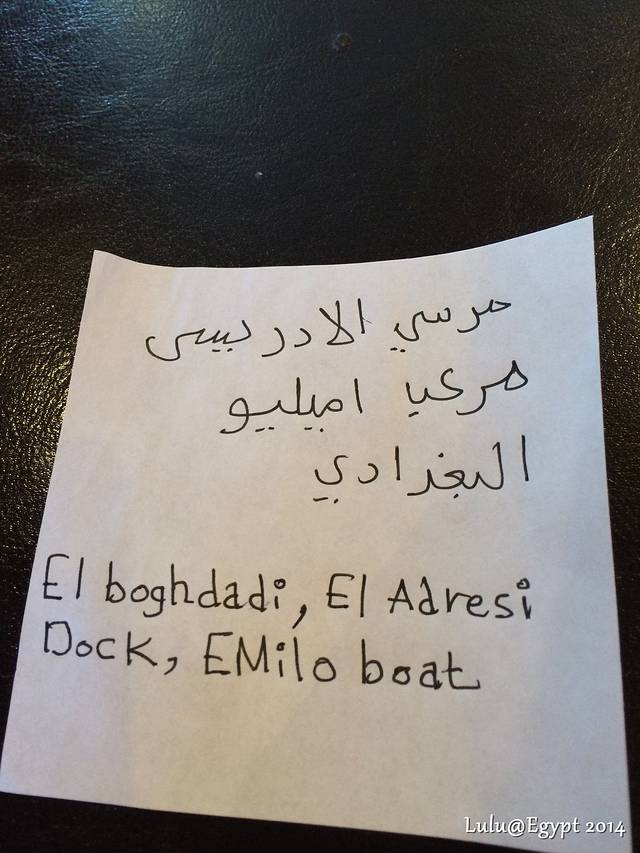 مرسي الادريسى
مركب اميليو
البغدادي
El boghdadi, El Adresi
Dock, EMilo boat
Lulu@Egypt 2014